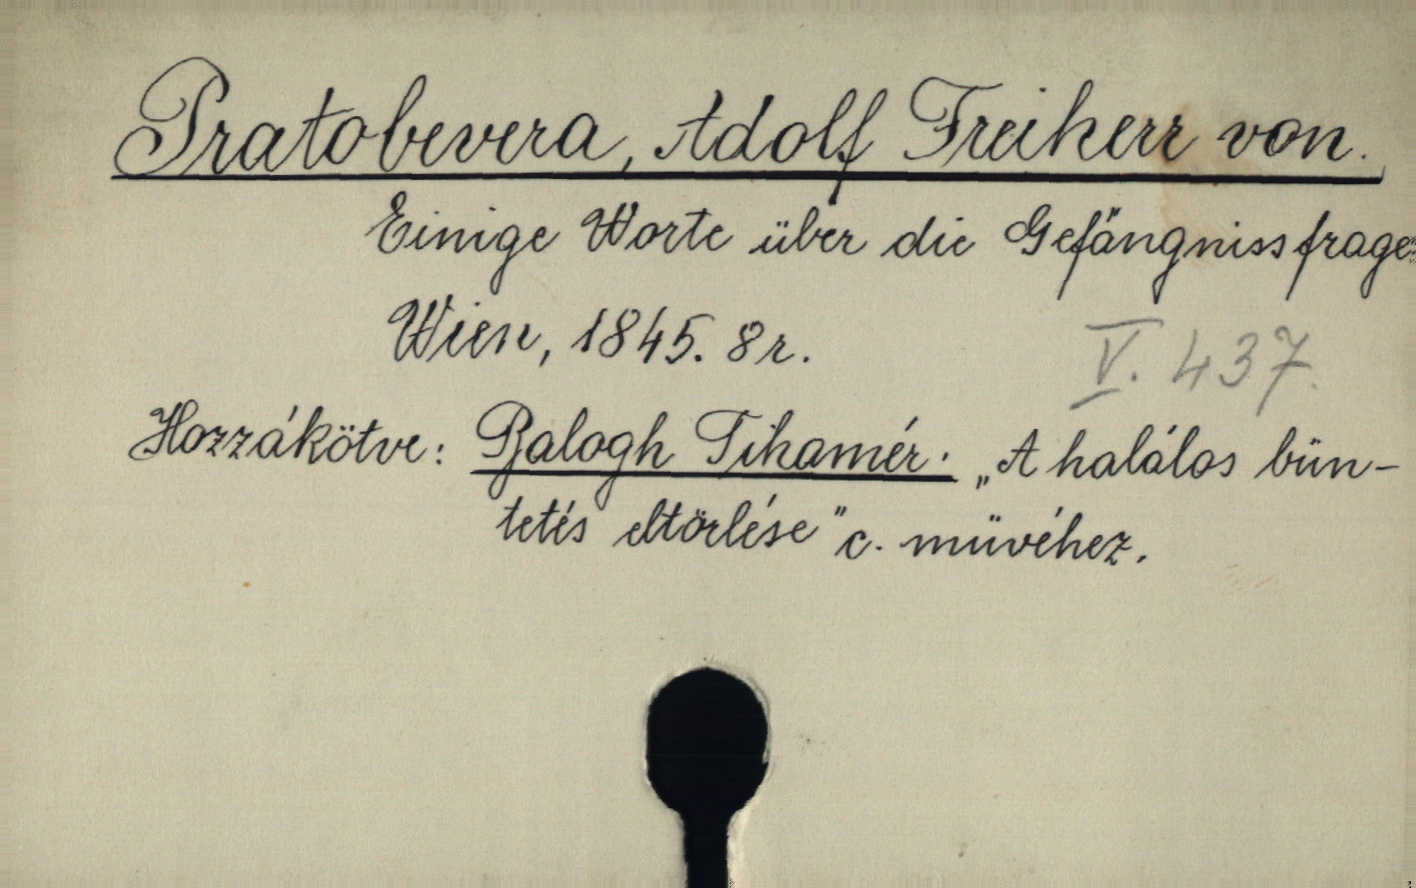 Pratobevera, Adolf Freiherr von.
Einige Worte über die Gefängnissfrage.
Wien, 1845. 8r.
V. 437.
Hozzákötve: Balogh Tihamér. „A halálos bün-
tetés eltörlése" c. müvéhez.